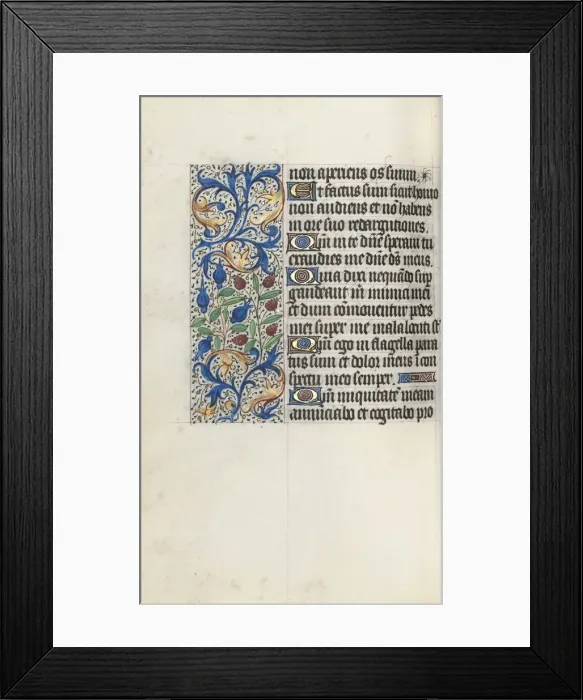 non aperiens os suum.
Et factus sum sicut homo
non audiens et nō habens
in ore suo redargutiones.
Qm̄ in te dn̄e speravi tu
exaudies me dn̄e ds̄ meus.
Quia dixi nequādo sup
gaudeant m̄ inimici mei
et dum cōmoventur pedes
mei super me mala locuti st̄
Qm̄ ego in flagella para
tus sum et dolor meus i con
spectu meo semper.
Qm̄ iniquitatē meam
annūciabo et cogitabo pro